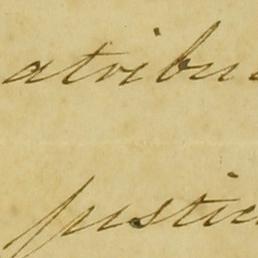 atribu
justici